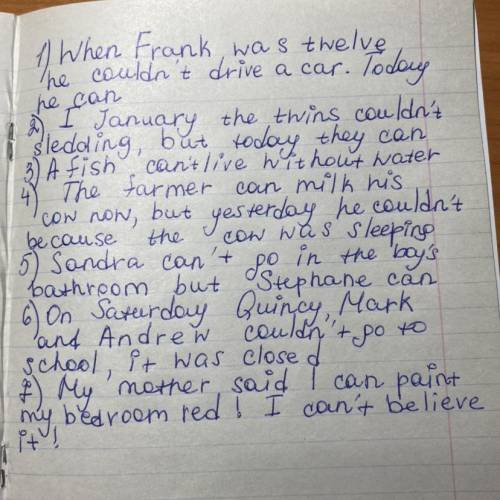 1) When Frank was twelve
he couldn't drive a car. Today
he can
2) I January the twins couldn't
sledding, but today they can
3) A fish can't live without water
4) The farmer can milk his
cow now, but yesterday he couldn't
because the cow was sleeping
5) Sandra can't go in the boy's
bathroom but Stephane can
6) On Saturday Quincy, Mark
and Andrew couldn't go to
school, it was closed
7) My mother said I can paint
my bedroom red! I can't believe
it!